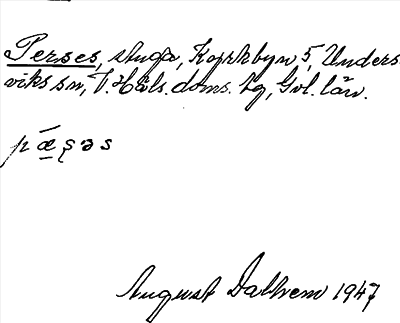 Perses, stuga, Kyrkbyn 5, Unders
viks sn, V. Häls. doms. tg, Gvl. län.
pǽʂəs
August Dalhem 1947